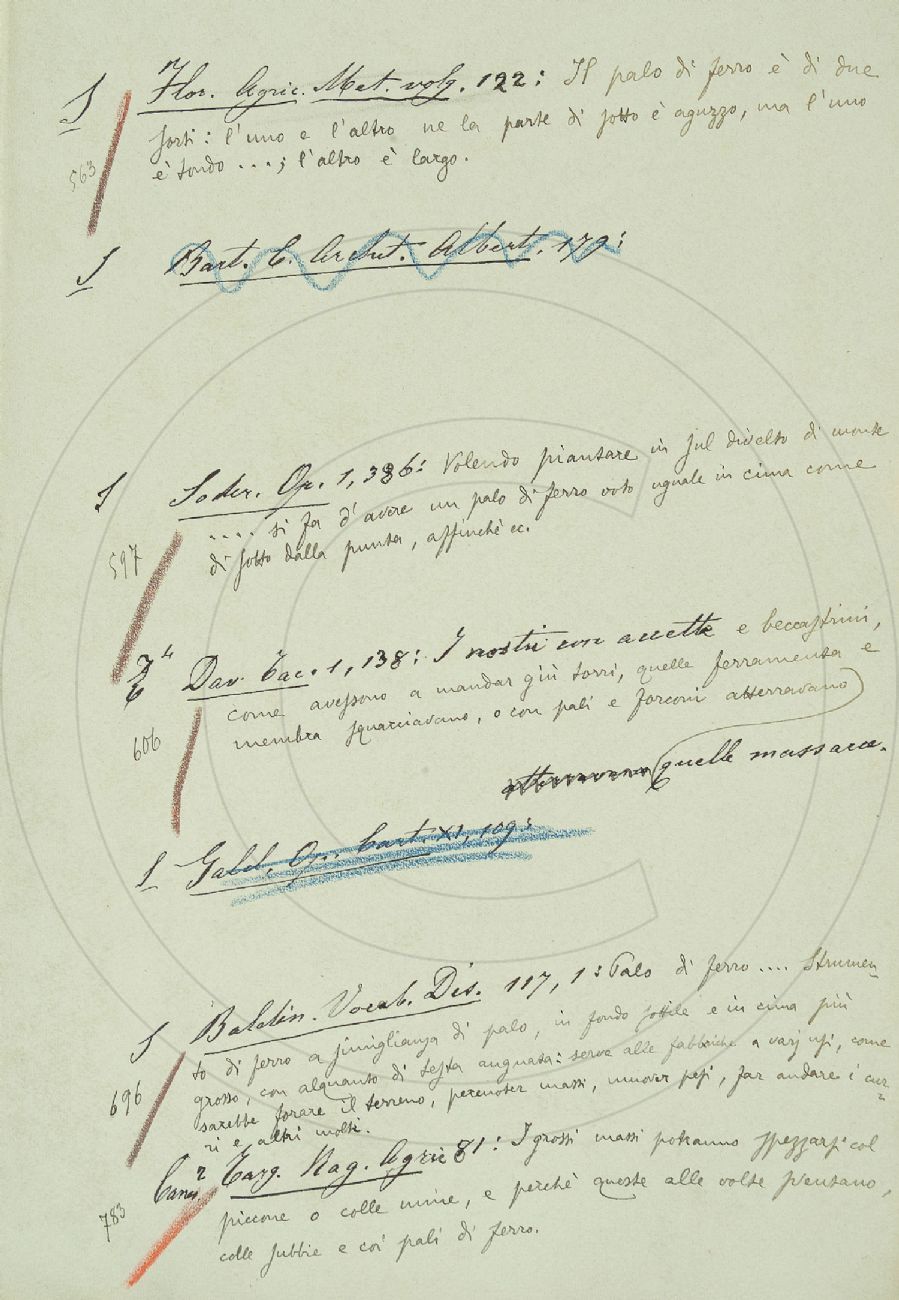 S Flor. Agric. Met. volg. 122: Il palo di ferro è di due
sorti: l'uno e l'altro ne la parte di sotto è aguzzo, ma l'uno
563 è tondo ...; l'altro è largo.
S Bart. C. Archit. Albert. 179:
S Soder. Op. 1, 386: Volendo piantare in sul divelto di monte
.... si fa d'avere un palo di ferro voto uguale in cima come
597 di sotto dalla punta, affinchè ec.
Dav. Tac. 1, 138: I nostri con accette e beccastrini,
come avessono a mandar giù torri, quelle ferramenta e
606 membra squarciavano, o con pali e forconi atterravano
quelle massacce.
S Galil. Op. XI, 109:
S Baldin. Vocab. Dis. 117, 1: Palo di ferro .... Strumen-
to di ferro a simiglianza di palo, in fondo sottile e in cima più
696 grosso, con alquanto di testa augnata: serve alle fabbriche a varj usi, come
sarebbe forare il terreno, percuoter massi, muover pesi, far andare i cur-
ri e altri molti.
Targ. Rag. Agric 81: I grossi massi potranno spezzarsi col
783 piccone o colle mine, e perchè queste alle volte sventano,
colle subbie e coi pali di ferro.